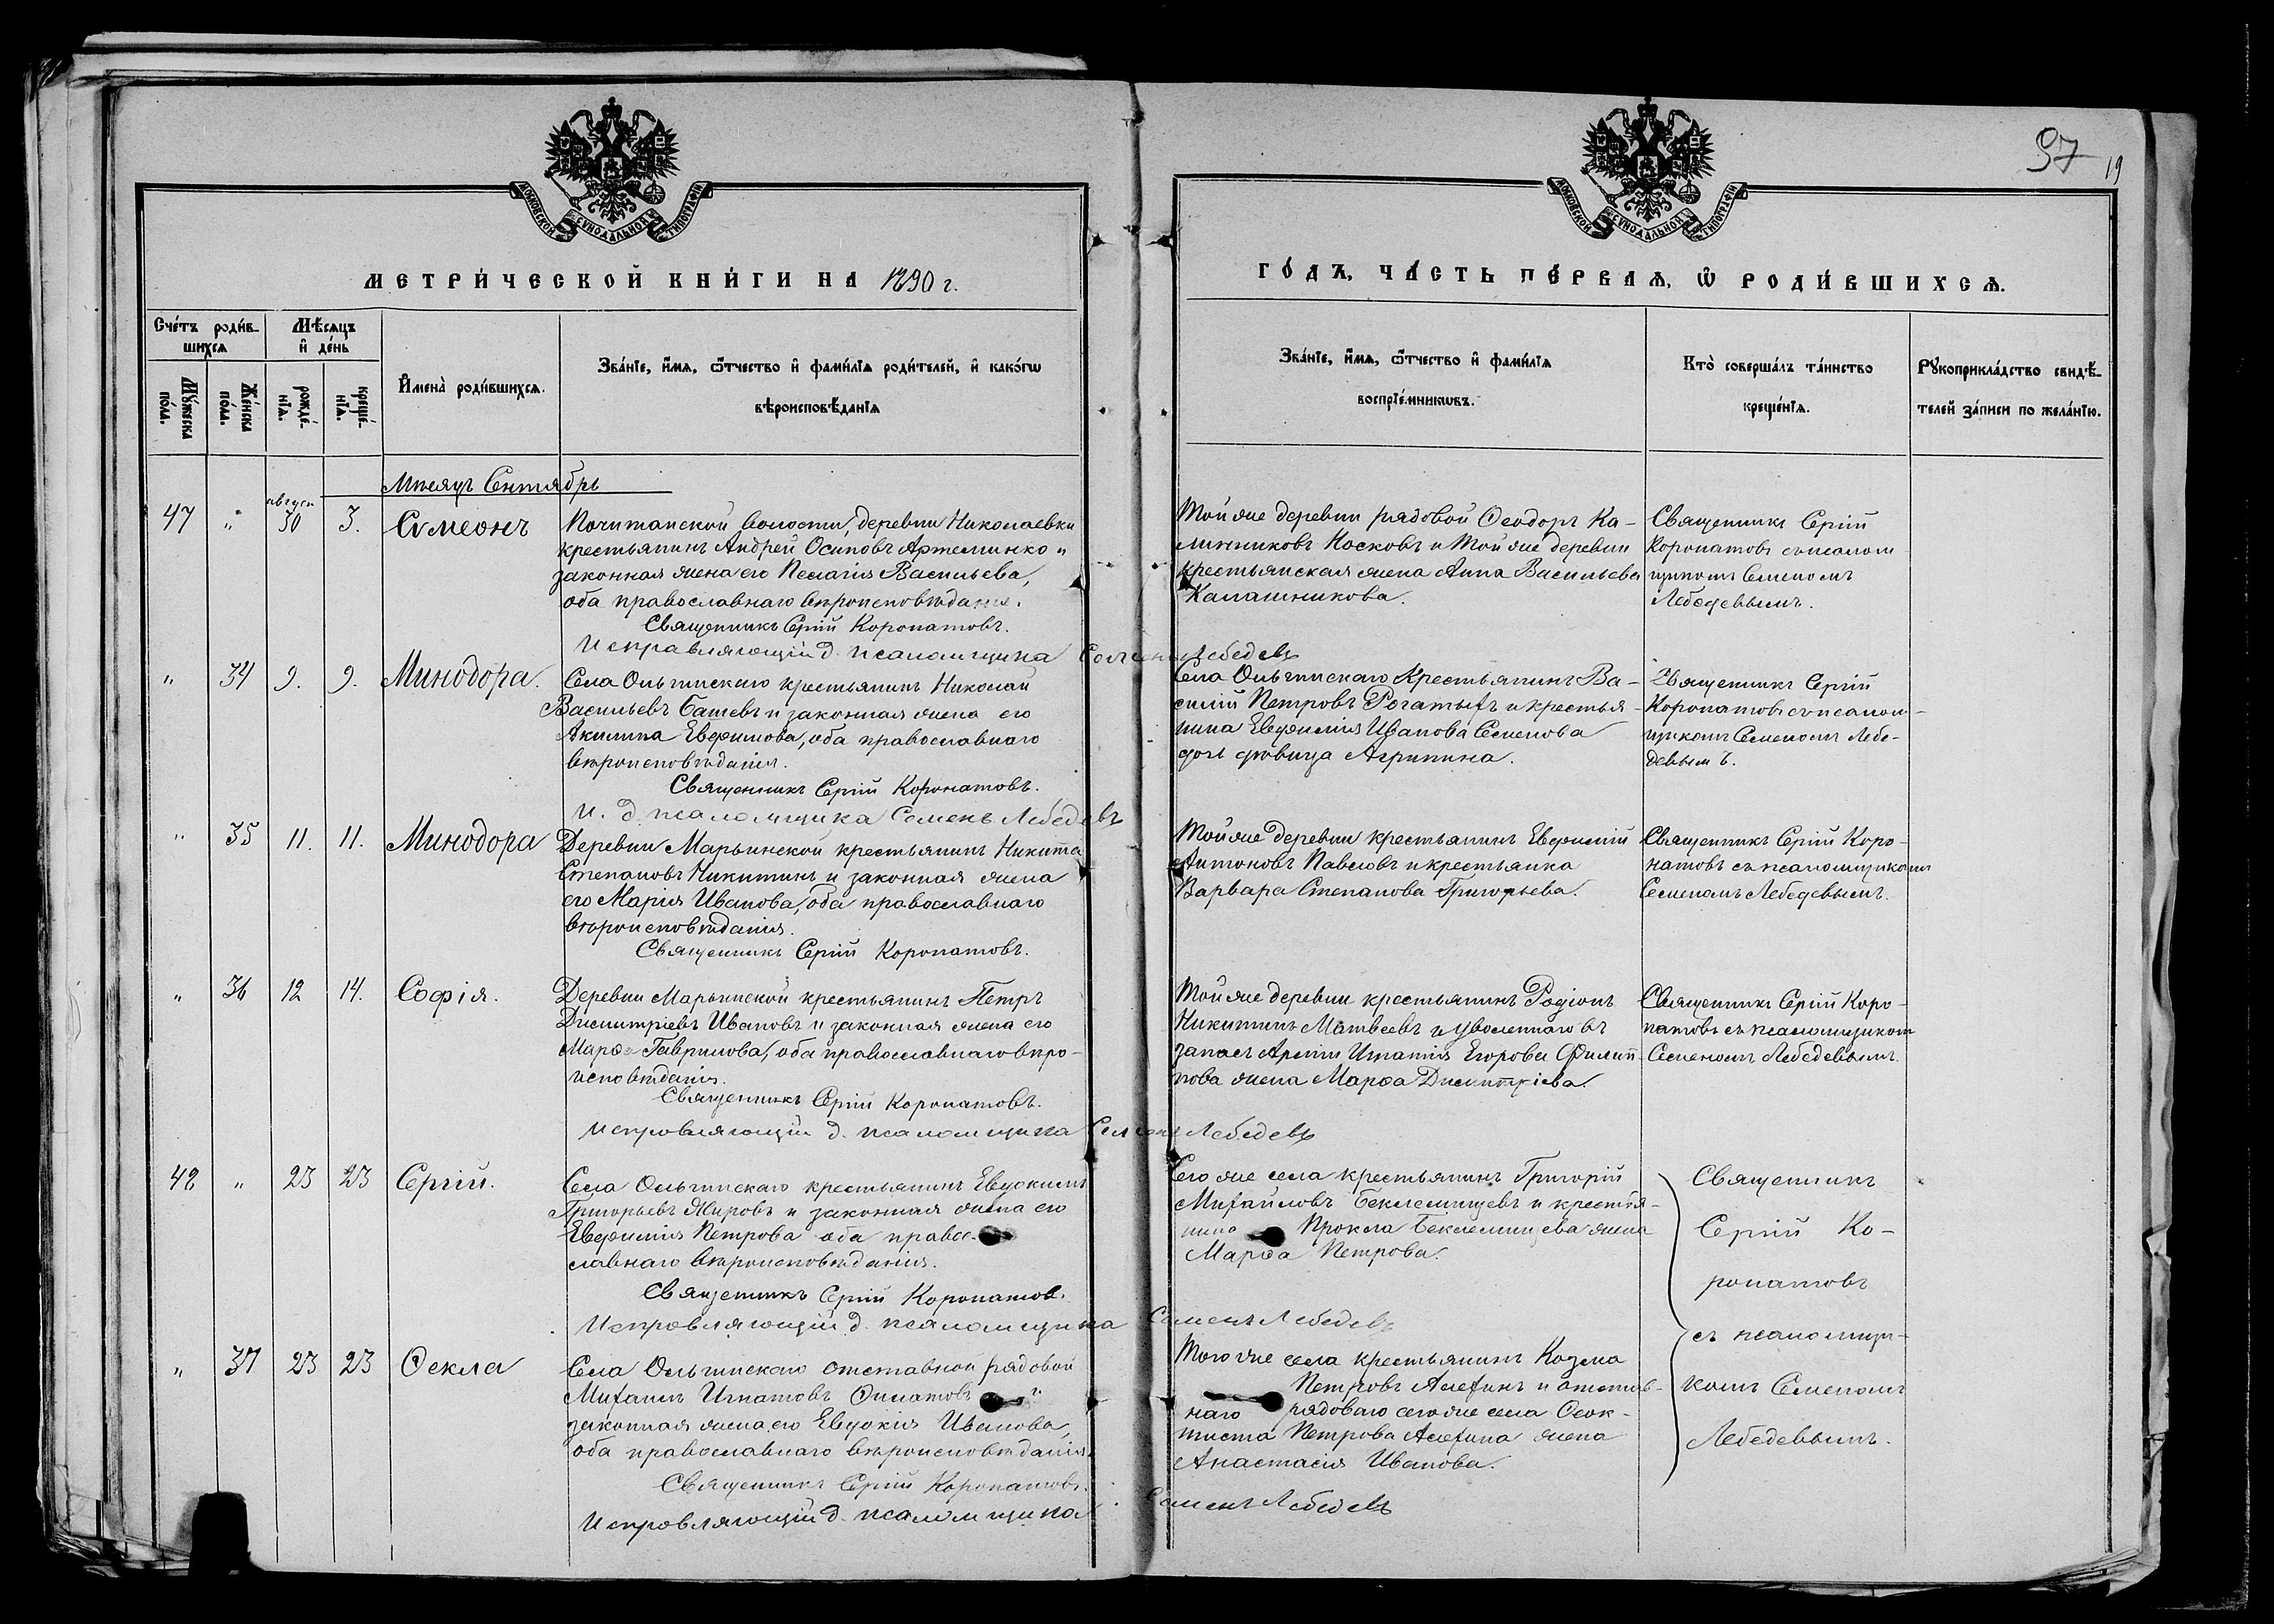 МОСКОВСКОЙ СѴНОДАЛЬНОЙ ТИПОГРАФІИ
МЕТРИ́ЧЕСКОЙ КНИ́ГИ НА 1890 г.
Сче́тъ роди́в-
шихсѧ
Мѣ́сѧцъ
и҆ де́нь
Мꙋ́жеска
по́ла.
Же́нска
по́ла.
рожде́-
нїѧ.
креще́-
нїѧ.
И҆мена̀ роди́вшихсѧ.
Зва́нїе, и҆́мѧ, ѻ҆́тчество и҆ фами́лїѧ роди́телей, и҆ како́гѡ
вѣроисповѣ́данїѧ
Мѣсяцъ Сентябрь
47 " август 30 3. Сѵмеонъ
Почитанской волости, деревни Николаевки
крестьянинъ Андрей Осиповъ Артеминко и
законная жена его Пелагія Васильева,
оба православнаго вѣроисповѣданія.
Священникъ Сергій Коронатовъ.
Исправляющій д. псаломщика Семенъ Лебедевъ
" 34 9. 9. Минодора.
Села Ольгинскаго крестьянинъ Николай
Васильевъ Башевъ и законная жена его
Акилина Евфимова, оба православнаго
вѣроисповѣданія.
Священникъ Сергій Коронатовъ.
И. д. псаломщика Семенъ Лебедевъ
" 35 11. 11. Минодора
Деревни Марьинской крестьянинъ Никита
Степановъ Никитинъ и законная жена
его Марія Иванова, оба православнаго
вѣроисповѣданія.
Священникъ Сергій Коронатовъ.
" 36 12 14. Софія.
Деревни Марьинской крестьянинъ Петръ
Димитріевъ Ивановъ и законная жена его
Марѳа Гаврилова, оба православнаго вѣро-
исповѣданія.
Священникъ Сергій Коронатовъ.
Исправляющій д. псаломщика Семенъ Лебедевъ
48 " 23 23 Сергій.
Села Ольгинскаго крестьянинъ Евдокимъ
Григорьевъ Жировъ и законная жена его
Евфимія Петрова оба правос-
славнаго вѣроисповѣданія.
Священникъ Сергій Коронатов.
Исправляющій д. псаломщика Семенъ Лебедевъ
" 37 23 23 Ѳекла
Села Ольгинскаго отставной рядовой
Михаилъ Игнатовъ и
законная жена его Евдокія Иванова,
оба православнаго вѣроисповѣданія.
Священникъ Сергій Коронатовъ.
Исправляющій д. псаломщика Семенъ Лебедевъ
97
19
МОСКОВСКОЙ СѴНОДАЛЬНОЙ ТИПОГРАФІИ
ГО́ДЪ, ЧА́СТЬ ПЕ́РВАѦ, Ѡ҆ РОДИ́ВШИХСѦ.
Зва́нїе, и҆́мѧ, ѻ҆́тчество и҆ фами́лїѧ
воспрїе́мникѡвъ.
Кто̀ соверша́лъ та́инство
креще́нїѧ.
Рꙋкоприкла́дство свидѣ́-
телей за́писи по жела́нїю.
Той же деревни рядовой Ѳеодоръ Ка-
линниковъ Носковъ и той же деревни
крестьянская жена Анна Васильева
Калашникова.
Священникъ Сергій
Коронатовъ съ псалом
щикомъ Семеномъ
Лебедевымъ.
Села Ольгинскаго Крестьянинъ Ва-
силій Петровъ Рогатыхъ и крестья-
нина Евфимія Иванова Семенова
дочь дѣвица Агрипина.
Священникъ Сергій
Коронатовъ съ псалом-
щикомъ Семеномъ Лебе-
девымъ.
Той же деревни крестьянинъ Евфимій
Антоновъ Павловъ и крестьянка
Варвара Степанова Григорьева.
Священникъ Сергій Коро-
натовъ съ псаломщикомъ
Семеномъ Лебедевымъ.
Той же деревни крестьянинъ Родіонъ
Никитинъ Матвеевъ и уволеннаго въ
запасъ Арміи Игнатія Егорова Филип
пова жена Марѳа Димитріева.
Священникъ Сергій Коро-
натовъ съ псаломщиком
Семеномъ Лебедевымъ.
Того же села крестьянинъ Григорій
Михайловъ Беклемищевъ и крестья-
нина Прокла Беклемищева жена
Марѳа Петрова.
Священникъ
Сергій Ко-
ронатовъ
съ псаломщи-
комъ Семеномъ
Лебедевымъ.
Того же села крестьянинъ Козма
Петровъ Алехинъ и отстав-
наго рядоваго того же села Ѳеок-
тиста Петрова Алехина жена
Анастасія Иванова.